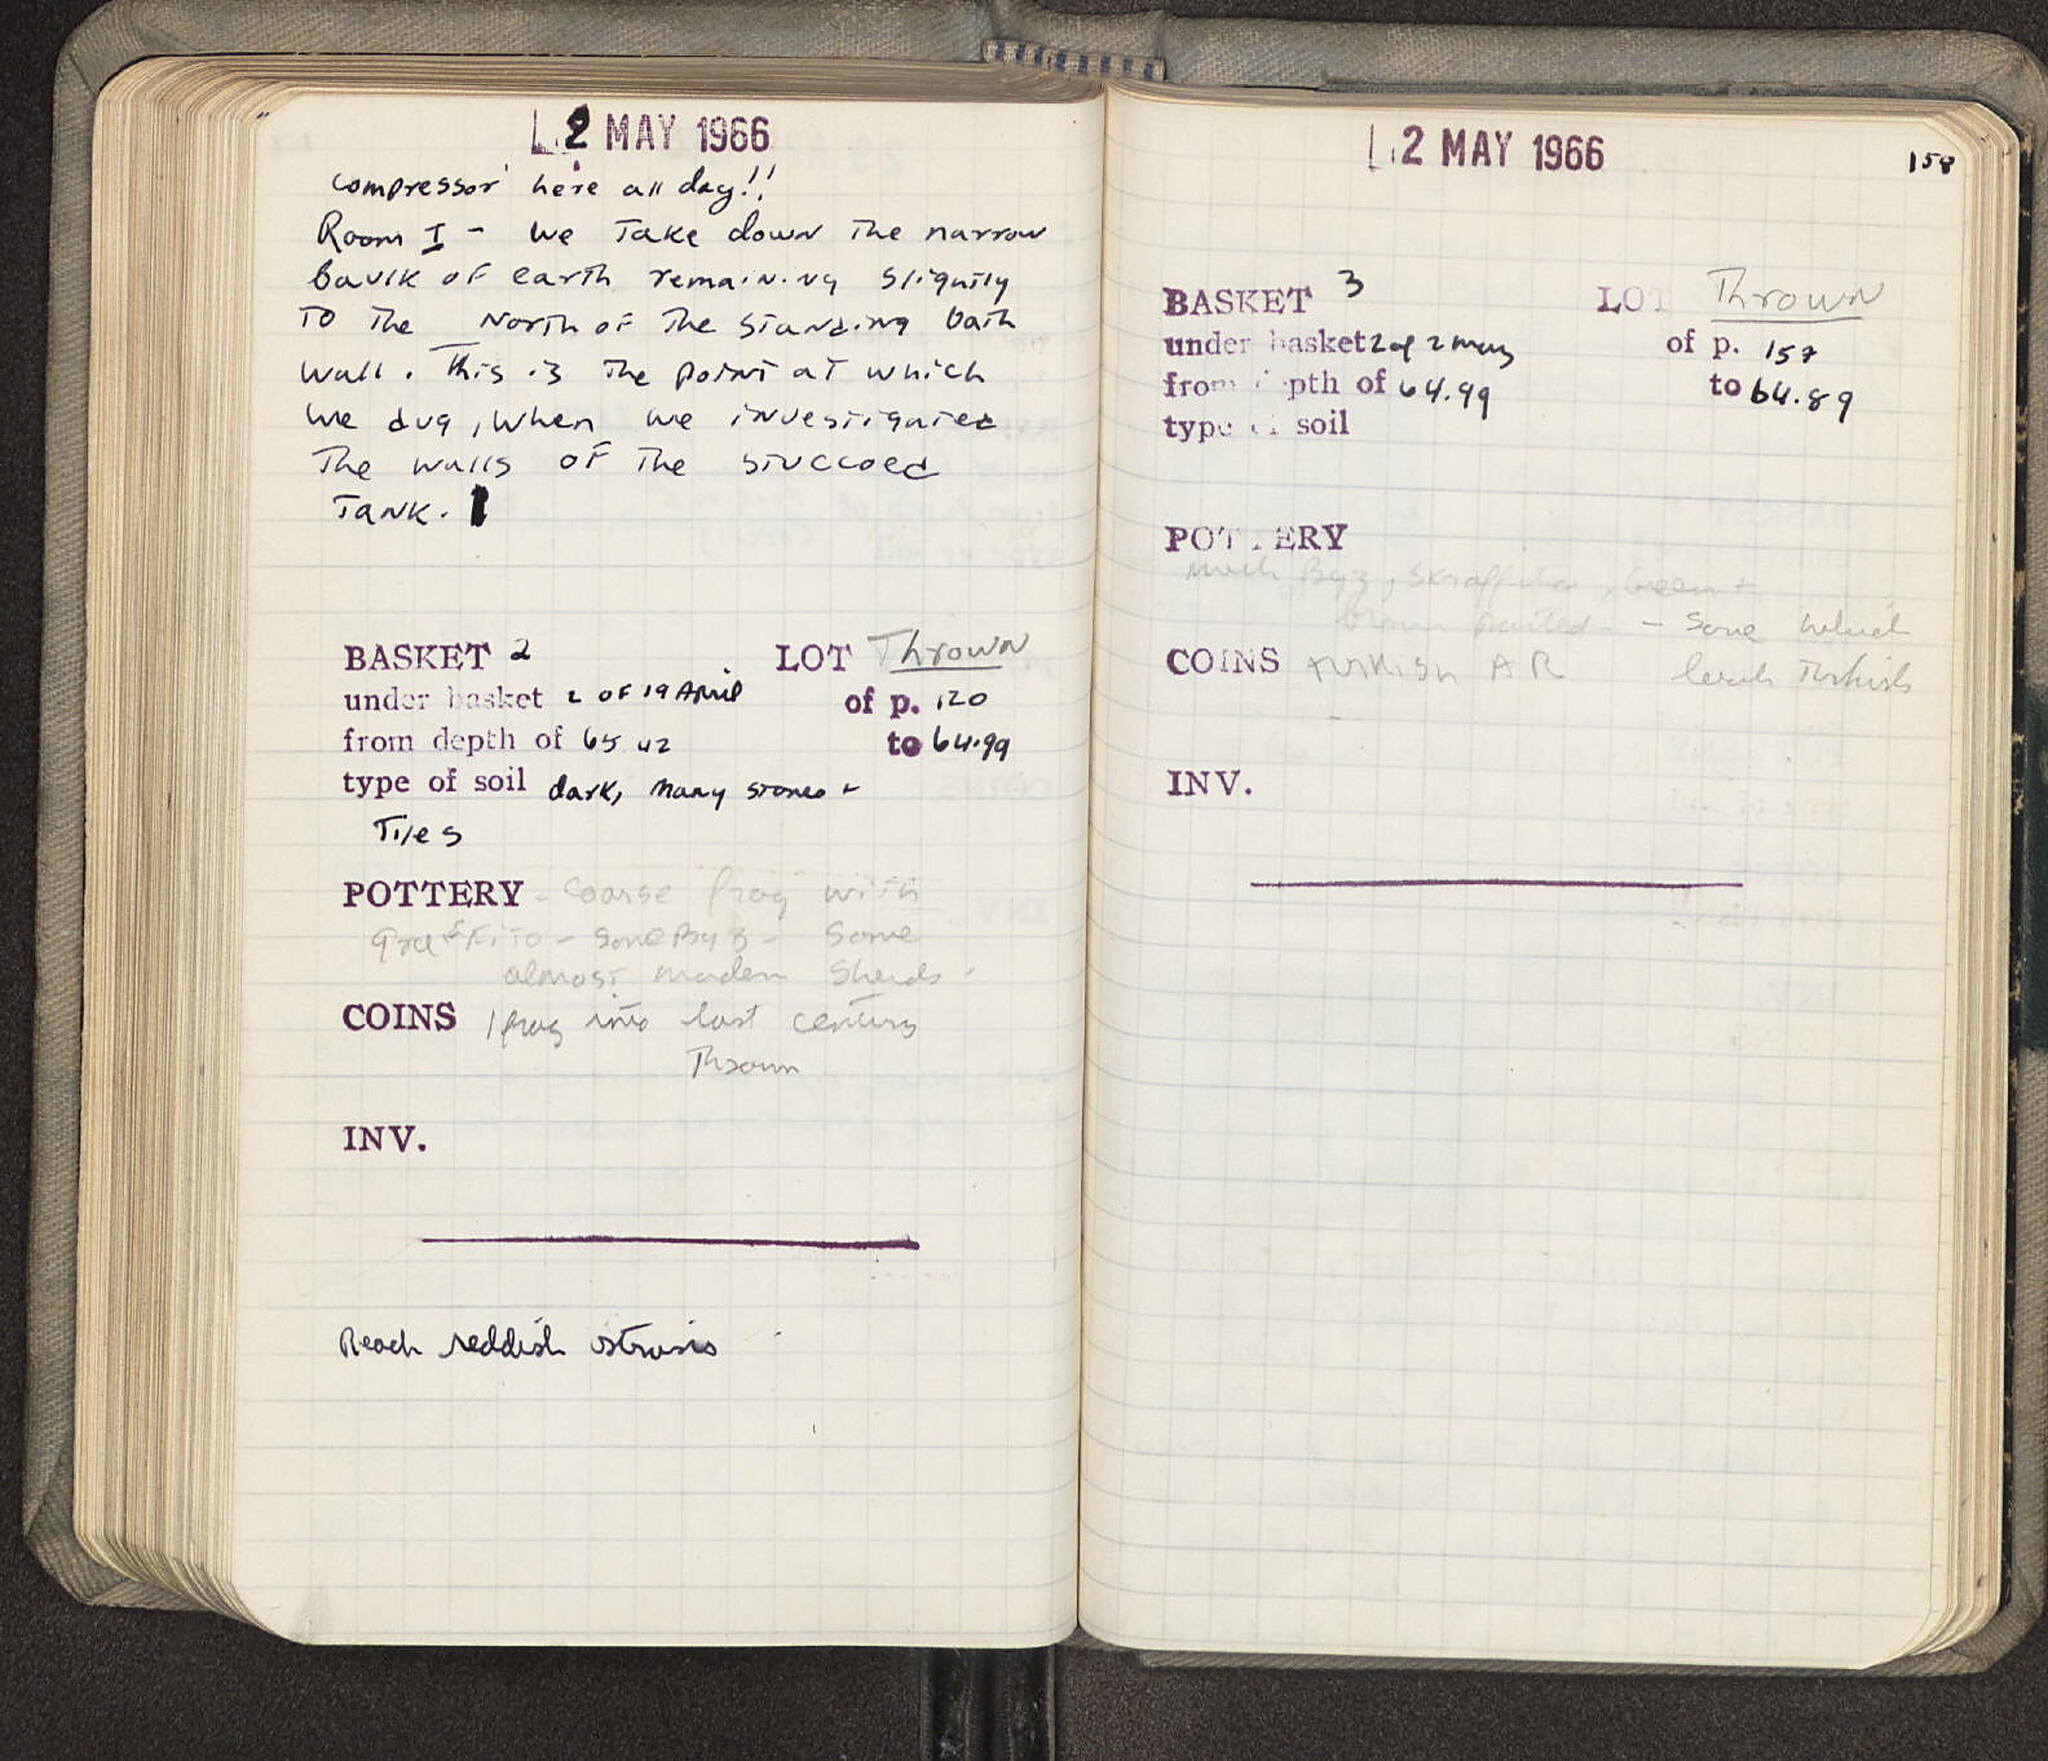 2 MAY 1966
compressor here all day!!
Room I - We Take down The narrow
baulk of earth remaining slightly
To The North of The standing bath
wall. This is The point at which
we dug, when we investigated
The walls of The stuccoed
Tank.
BASKET 2 LOT Thrown
under basket 2 OF 19 April of p. 120
from depth of 65.42 to 64.99
type of soil dark, many stones +
Tiles
POTTERY - Coarse frag with
graffito - some Byz - Some
almost modern Sherds.
COINS 1 frag into last century
Thrown
INV.
Reach reddish strosis
2 MAY 1966
158
BASKET 3 LOT Thrown
under basket 2 of 2 May of p. 157
from depth of 64.99 to 64.89
type of soil
POTTERY
much Byz, skraffito, Green +
brown painted - Some which
COINS Turkish AR Turkish
INV.